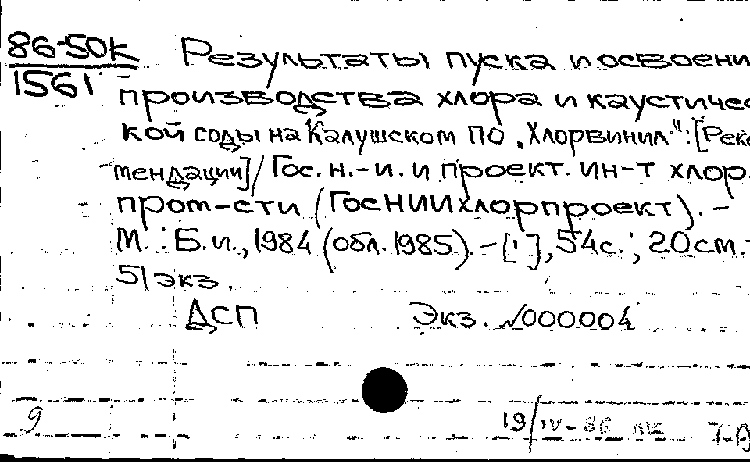 86-50К Результаты пуска и освоени
1561 производства хлора и каустичес
кой соды на Калушском ПО „Хлорвинил“: [Реко
мендации] / Гос. н.-и. и проект. ин-т хлор.
пром-сти (ГосНИИхлорпроект). -
М.: Б.и., 1984 (обл. 1985). - [1], 54с.; 20см. -
51 экз.
ДСП Экз. №000004
9 19/IV-86